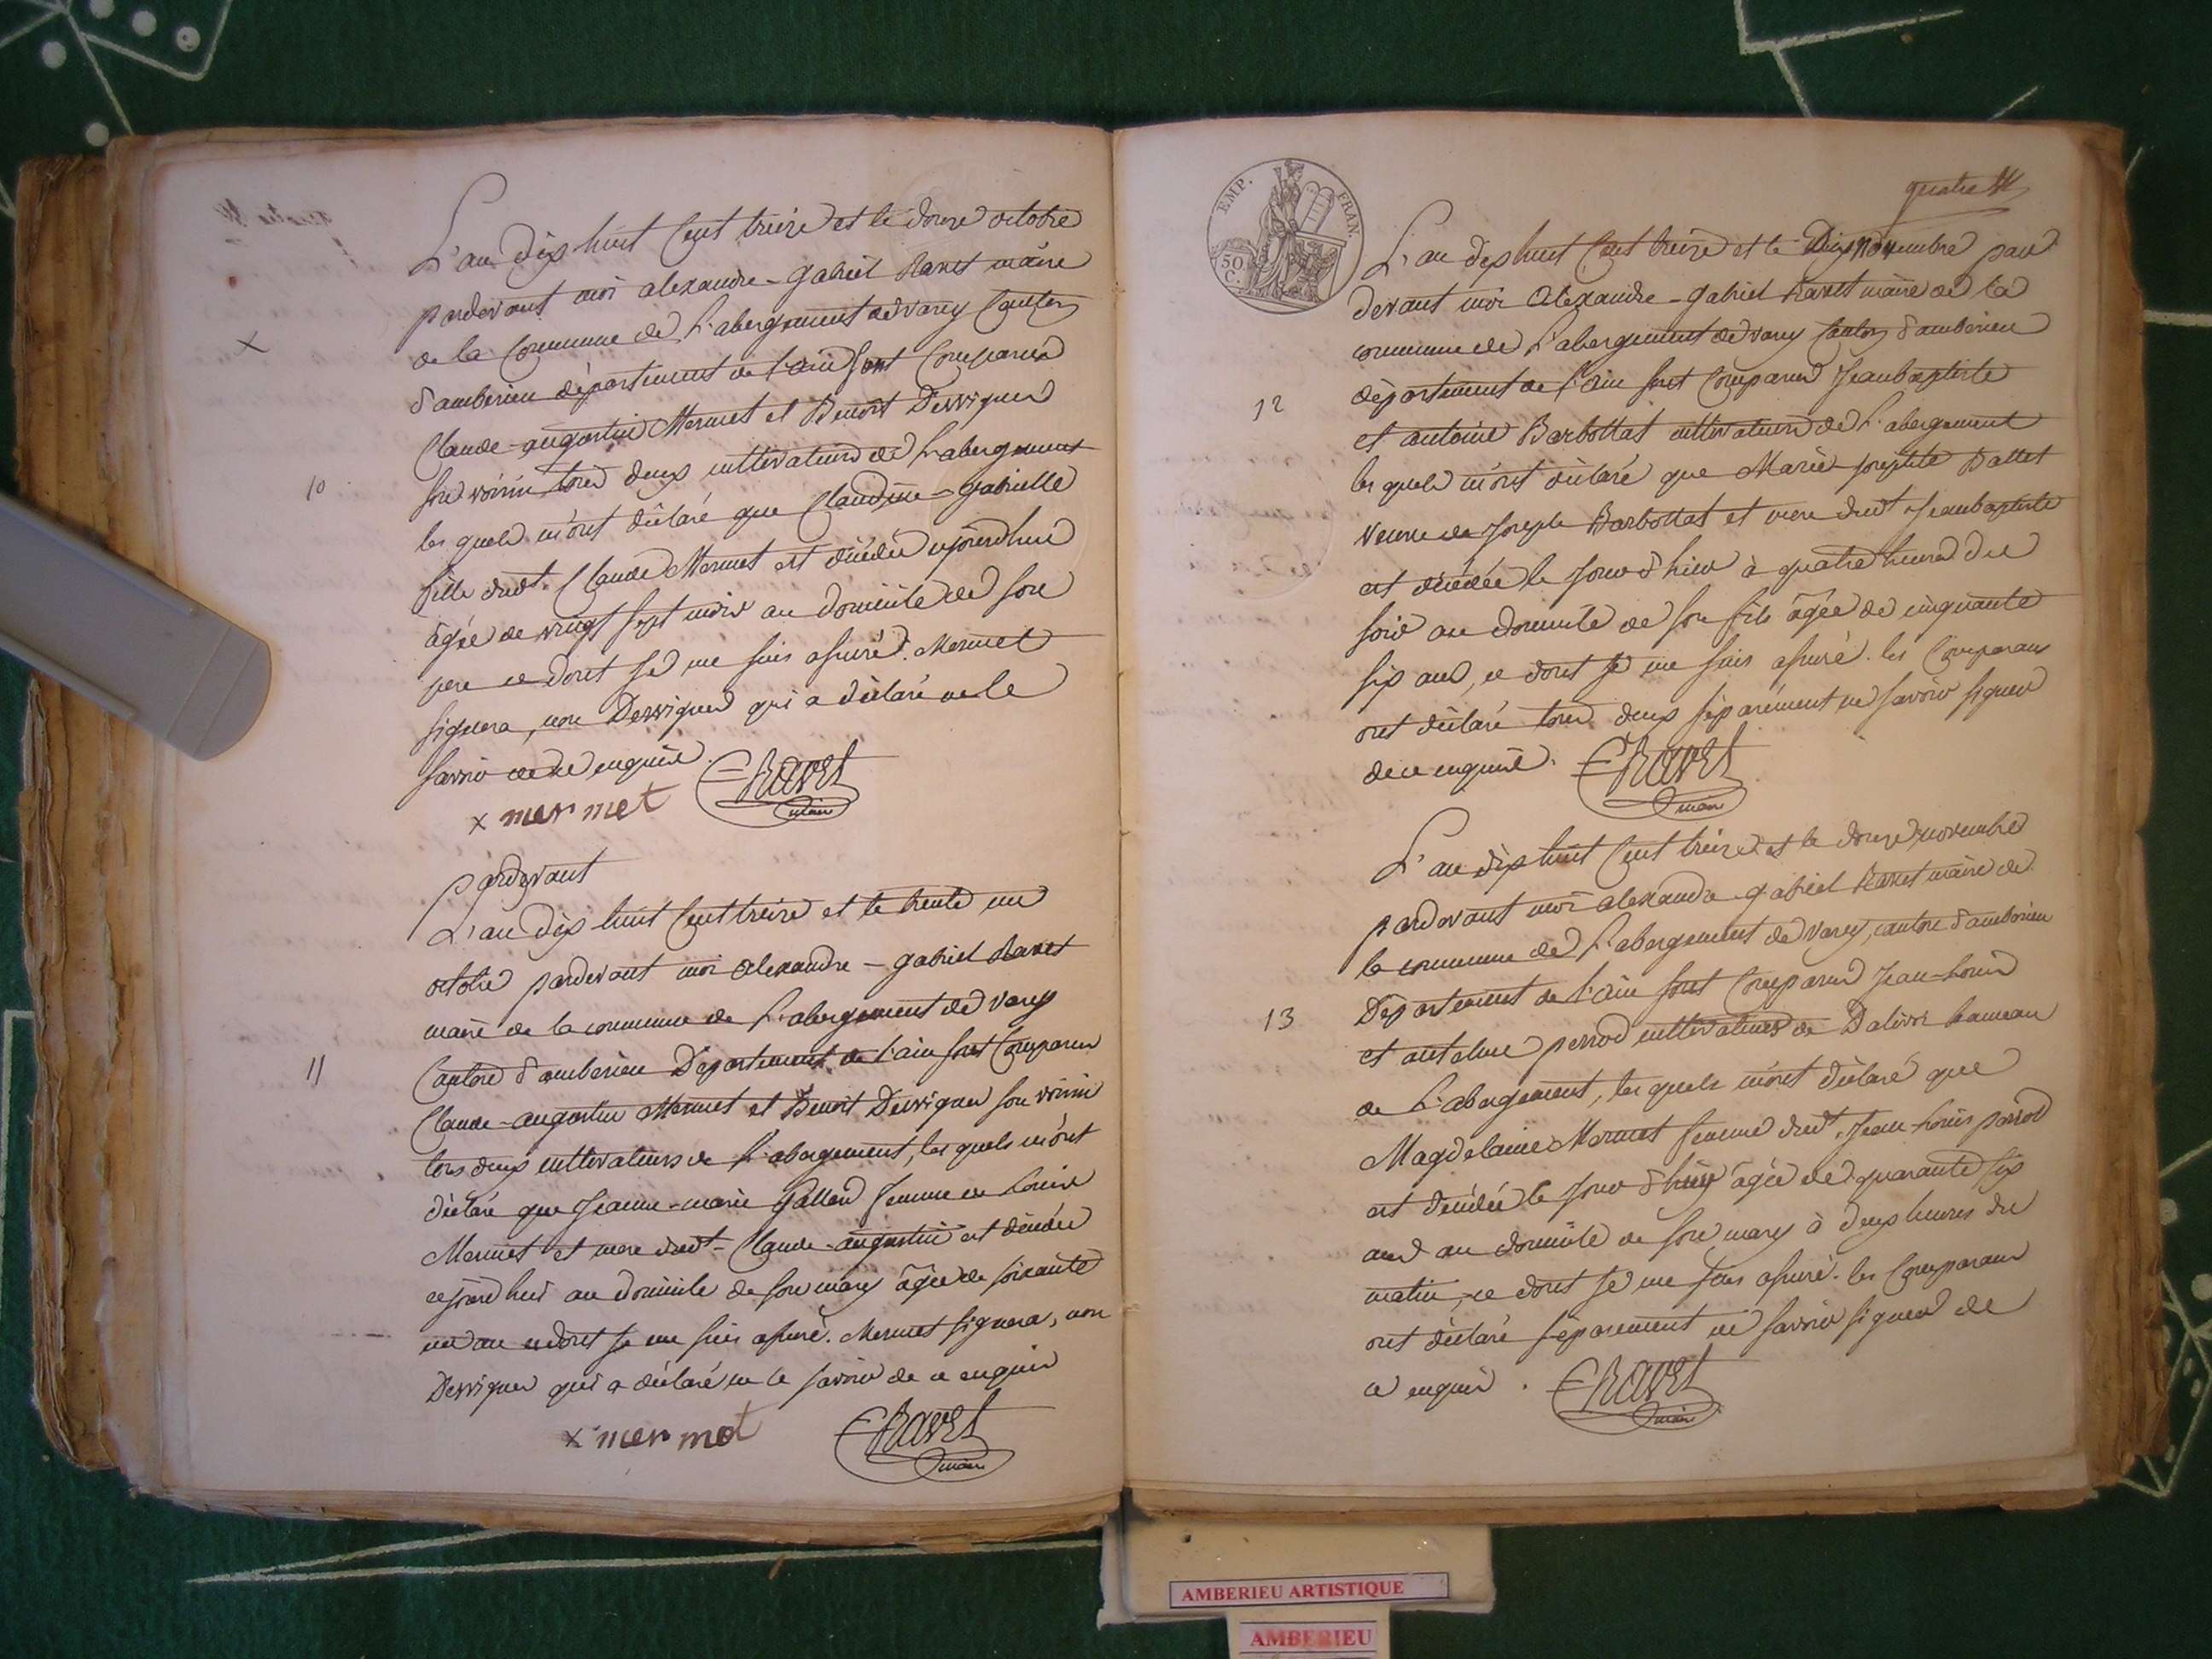 L'an dix huit Cent treize et le douze octobre
pardevant moi alexandre - gabriel Ravet maire
de la Commune de L'abergement de varey Canton
d'amberieu département de l'ain sont Comparus
Claude - augustin Mermet et Benoit Dervigner
son voisin tous deux cultivateurs de L'abergement
10
les quels m'ont déclaré que Claudine - gabrielle
fille dudt. Claude Mermet est décédée ajourdhui
âgée de vingt sept mois au domicile de son
pere ce dont je me suis assuré. Mermet
signera, non Dervigner qui a déclaré ne le
savoir de ce enquis.
x mermet Ravet
maire
pardevant
L'an dix huit Cent treize et le trente un
octobre pardevant moi alexandre - gabriel Ravet
maire de la commune de L'abergement de varey
Canton d'amberieu Département de l'ain sont Comparus
11
Claude - augustin Mermet et Benoit Dervigner son voisin
tous deux cultivateurs de L'abergement, les quels m'ont
déclaré que Jeanne - marie femme de Louis
Mermet et mere dudt - Claude - augustin est décédée
ajourdhui au domicile de son mary âgée de soixante
un an ce dont je me suis assuré. Mermet signera, non
Dervigner qui a déclaré ne le savoir de ce enquis
x mermet Ravet
maire
EMP. FRAN.
50 C.
quatre
L'an dix huit Cent treize et le Dix novembre par
devant moi Alexandre - gabriel Ravet maire de la
commune de L'abergement de varey Canton d'amberieu
département de l'Ain sont Comparus Jeanbaptiste
12
et antoine Barbollat cultivateurs de L'abergement
les quels m'ont déclaré que Marie - josephte Ballet
veuve de Joseph Barbollat et mere dudt Jeanbaptiste
est décédée le jour d'hier à quatre heures du
soir au domicile de son fils âgée de cinquante
six ans, ce dont je me suis assuré. les Comparans
ont déclaré tous deux séparément ne savoir signer
de ce enquis. Ravet
maire
L'an dix huit Cent treize et le douze novembre
pardevant moi alexandre gabriel Ravet maire de
la commune de L'abergement de varey, canton d'amberieu
Département de l'ain sont Comparus Jean - Louis
13
et antelme perrod cultivateurs de Dalivoi hameau
de L'abergement, les quels m'ont déclaré que
Magdelaine Mermet femme dudt. Jean - Louis perrod
est décédée le jour d'hier âgée de quarante six
ans au domicile de son mary à deux heures du
matin, ce dont je me suis assuré. les Comparans
ont déclaré séparement ne savoir signer de
ce enquis. Ravet
maire
AMBERIEU ARTISTIQUE
AMBERIEU